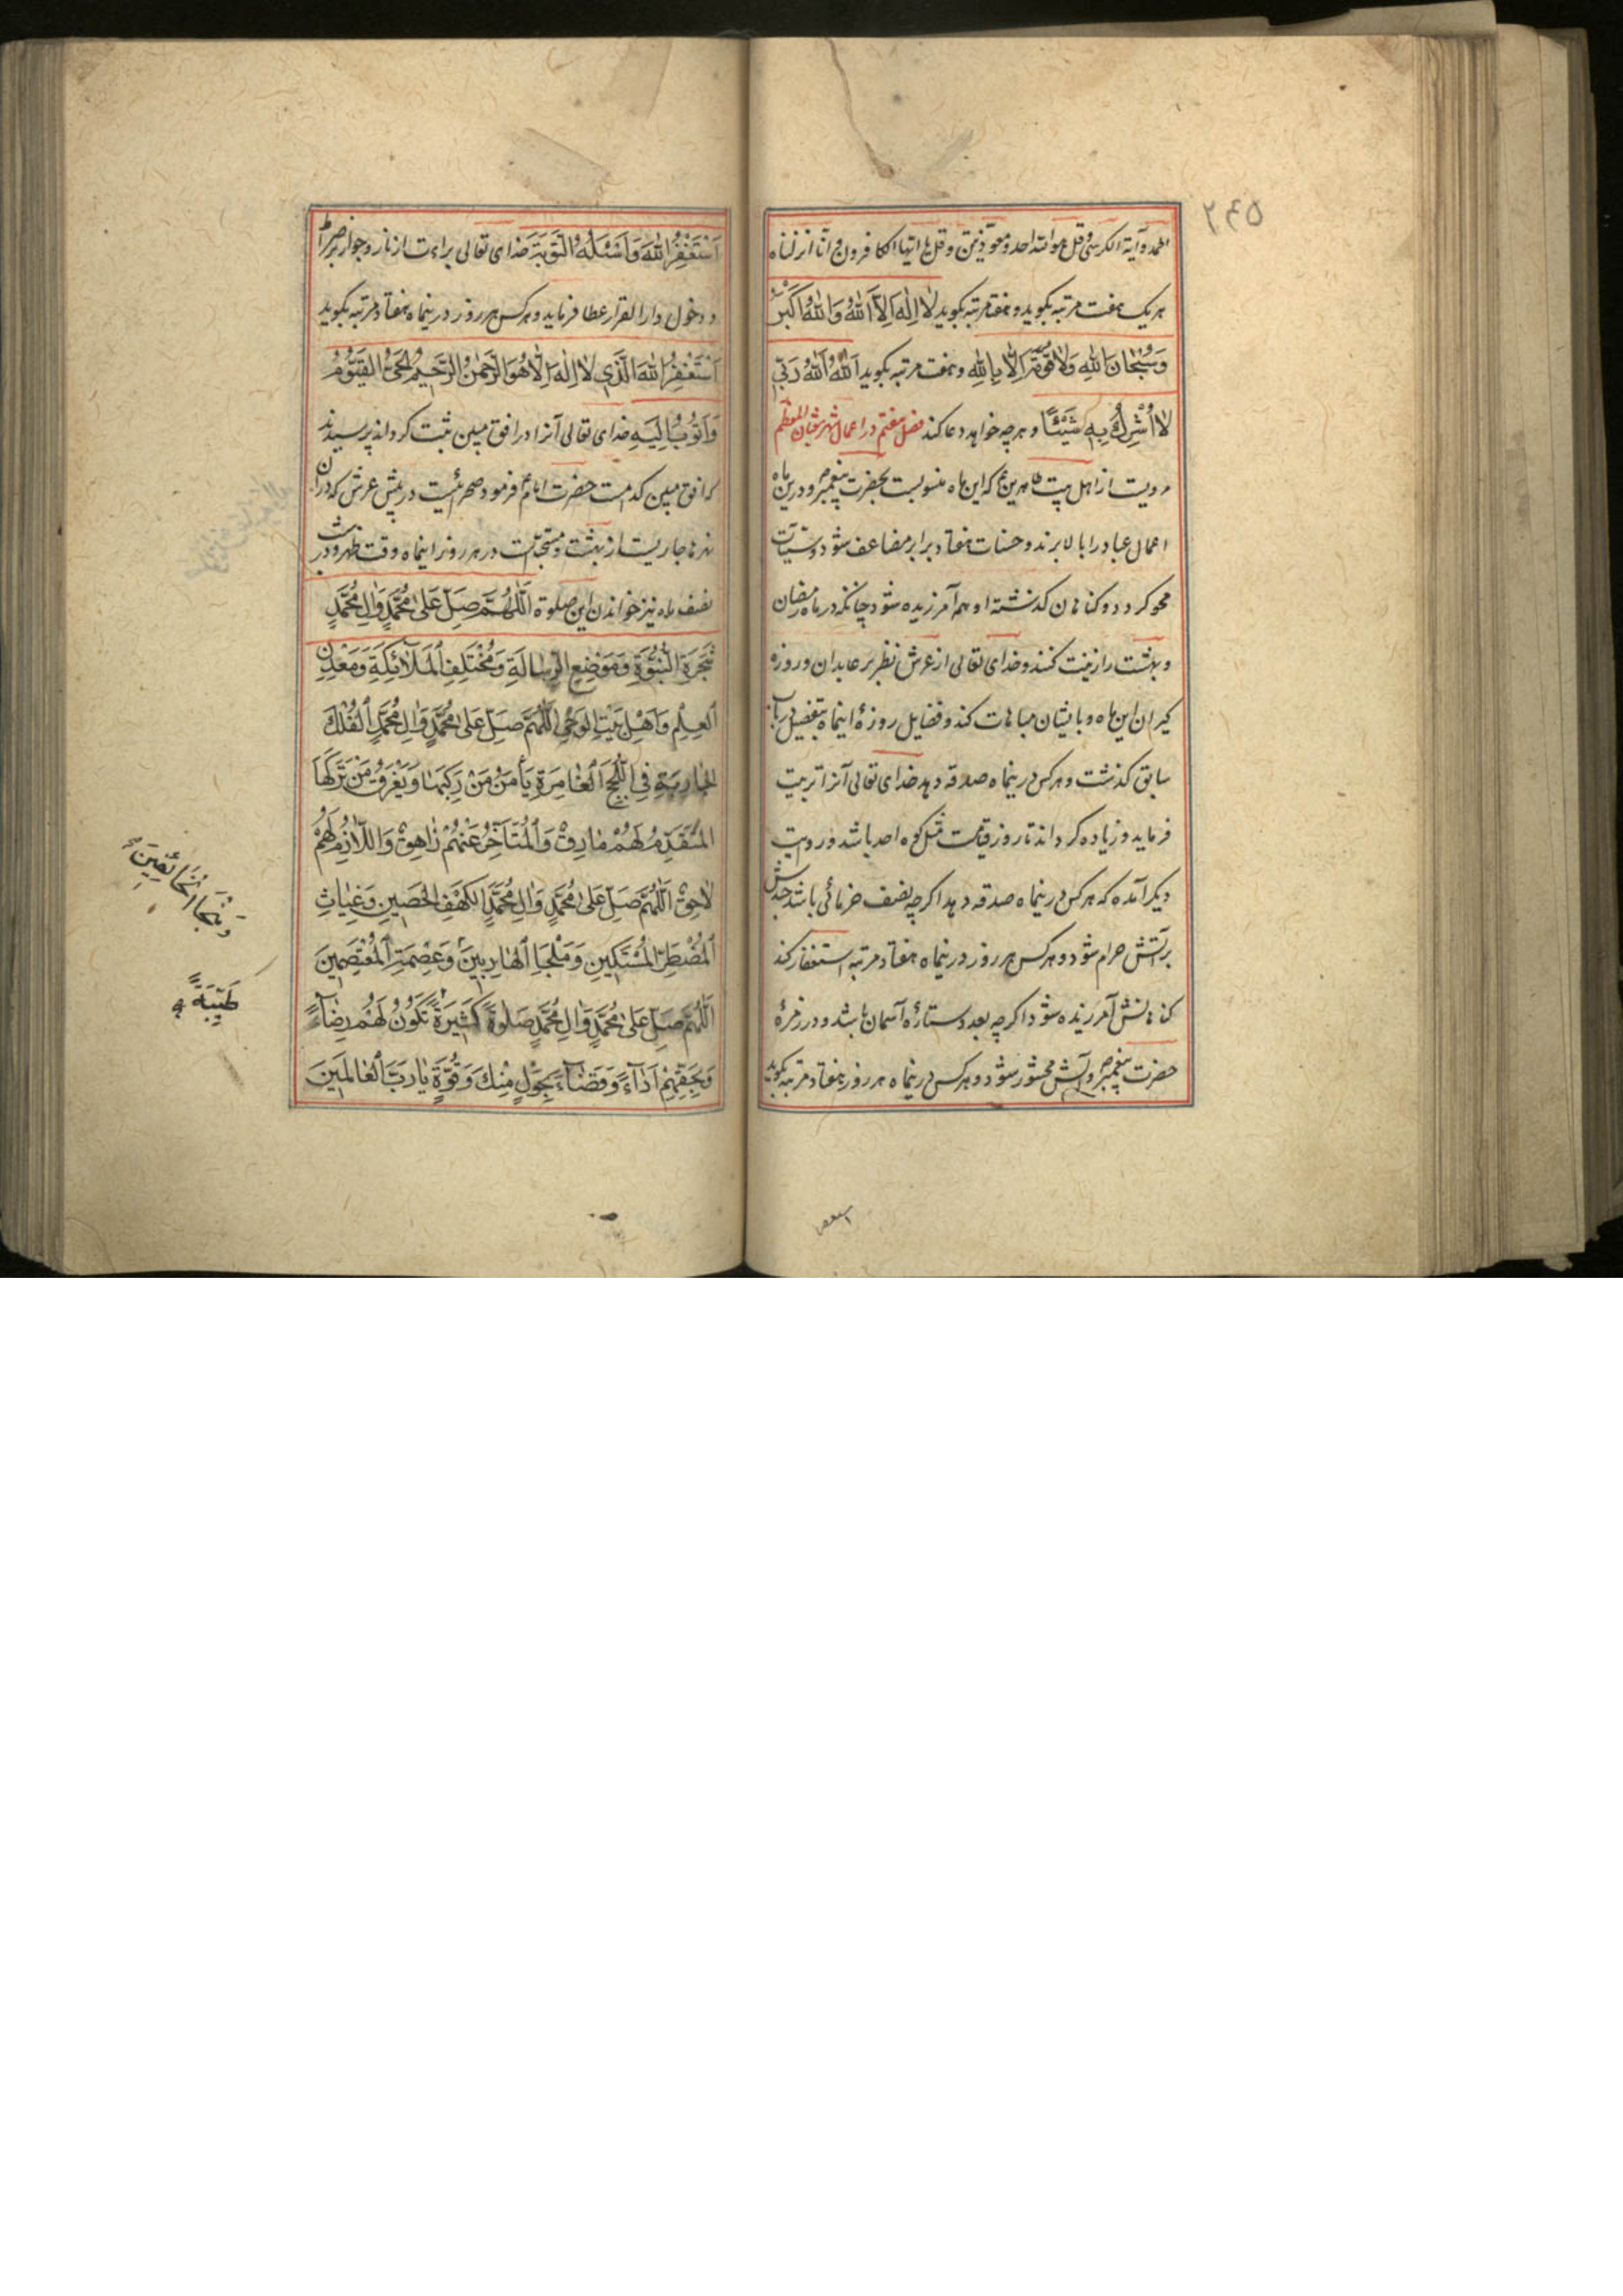 ۲۴۵
الحمد و آیة الکرسی و قل هو الله احد و معوّذتین و قل یا ایها الکافرون و انّا انزلناه
هر یک هفت مرتبه بکوید و هفت مرتبه بکوید لٰا اِلٰهَ اِلَّا اللهُ وَاللهُ اَکْبَرُ
وَسُبْحٰانَ اللهِ وَلٰا قُوَّةَ اِلّٰا بِاللهِ و هفت مرتبه بکوید اَللهُ اَللهُ رَبّی
لٰا اُشْرِكُ بِهِ شَیْئًا و هر چه خواهد دعا کند فصل هفتم در اعمال شهر شعبان المعظم
مرویست از اهل بیت طاهرین ع که این ماه منسوبست بحضرت پیغمبر ص و درین ماه
اعمال عباد را بالا برند و حسنات هفتاد برابر مضاعف شود و سیّآت
محو کردد و کناهان کذشته او همه آمرزیده شود چنانکه در ماه رمضان
و بهشت را زینت کنند و خدای تعالی از عرش نظر بر عابدان و روزه
کیران این ماه و بایشان مباهات کند و فضایل روزهٔ اینماه بتفصیل در باب
سابق کذشت و هر کس درینماه صدقه دهد خدای تعالی آنرا تربیت
فرماید و زیاده کرداند تا روز قیامت مثل کوه احد باشد و در روایت
دیکر آمده که هر کس درینماه صدقه دهد اکر چه بنصف خرمائی باشد جسدش
بر آتش حرام شود و هر کس هر روز درینماه هفتاد مرتبه استغفار کند
کناهانش آمرزیده شود اکر چه بعدد ستارهٔ آسمان باشد و در زمرهٔ
حضرت پیغمبر ص و آلش محشور شود و هر کس درینماه هر روز هفتاد مرتبه بکوید
اَسْتَغْفِرُ اللهَ وَاَسْئَلُهُ التَّوْبَةَ خدای تعالی براءت از نار و جواز بر صراط
و دخول دار القرار عطا فرماید و هر کس هر روز درینماه هفتاد مرتبه بکوید
اَسْتَغْفِرُ اللهَ الَّذی لٰا اِلٰهَ اِلّٰا هُوَ الرَّحْمٰنُ الرَّحیمُ الْحَیُّ الْقَیُّومُ
وَاَتُوبُ اِلَیْهِ خدای تعالی آنرا در افق مبین ثبت کرداند پرسیدند
که افق مبین کدامست حضرت امام ع فرمود صحرائیست در پیش عرش که در آن
نهرها جاریست از بهشت و مستحبّ است در هر روز اینماه وقت ظهر و در شب
نصف ماه نیز خواندن این صلوة اَللّٰهُمَّ صَلِّ عَلٰی مُحَمَّدٍ وَاٰلِ مُحَمَّدٍ
شَجَرَةِ النُّبُوَّةِ وَمَوْضِعِ الرِّسٰالَةِ وَمُخْتَلَفِ الْمَلٰائِکَةِ وَمَعْدِنِ
الْعِلْمِ وَاَهْلِ بَیْتِ الْوَحْیِ اَللّٰهُمَّ صَلِّ عَلٰی مُحَمَّدٍ وَاٰلِ مُحَمَّدٍ اَلْفُلْكِ
الْجٰارِیَةِ فِی اللُّجَجِ الْغٰامِرَةِ یَأْمَنُ مَنْ رَکِبَهٰا وَیَغْرَقُ مَنْ تَرَکَهٰا
اَلْمُتَقَدِّمُ لَهُمْ مٰارِقٌ وَالْمُتَأَخِّرُ عَنْهُمْ زٰاهِقٌ وَاللّٰازِمُ لَهُمْ
لٰاحِقٌ اَللّٰهُمَّ صَلِّ عَلٰی مُحَمَّدٍ وَاٰلِ مُحَمَّدٍ الْکَهْفِ الْحَصینِ وَغِیٰاثِ
الْمُضْطَرِّ الْمُسْتَکینِ وَمَلْجَأِ الْهٰارِبینَ وَعِصْمَةِ الْمُعْتَصِمینَ
اَللّٰهُمَّ صَلِّ عَلٰی مُحَمَّدٍ وَاٰلِ مُحَمَّدٍ صَلٰوةً کَثیرَةً تَکُونُ لَهُمْ رِضٰاءً
وَبِحَقِّهِمْ اَدٰاءً وَقَضٰاءً بِحَوْلٍ مِنْكَ وَقُوَّةٍ یٰا رَبَّ الْعٰالَمینَ
وَمَنْجَا الْخٰائِفینَ
طَیِّبَةً
استغفر